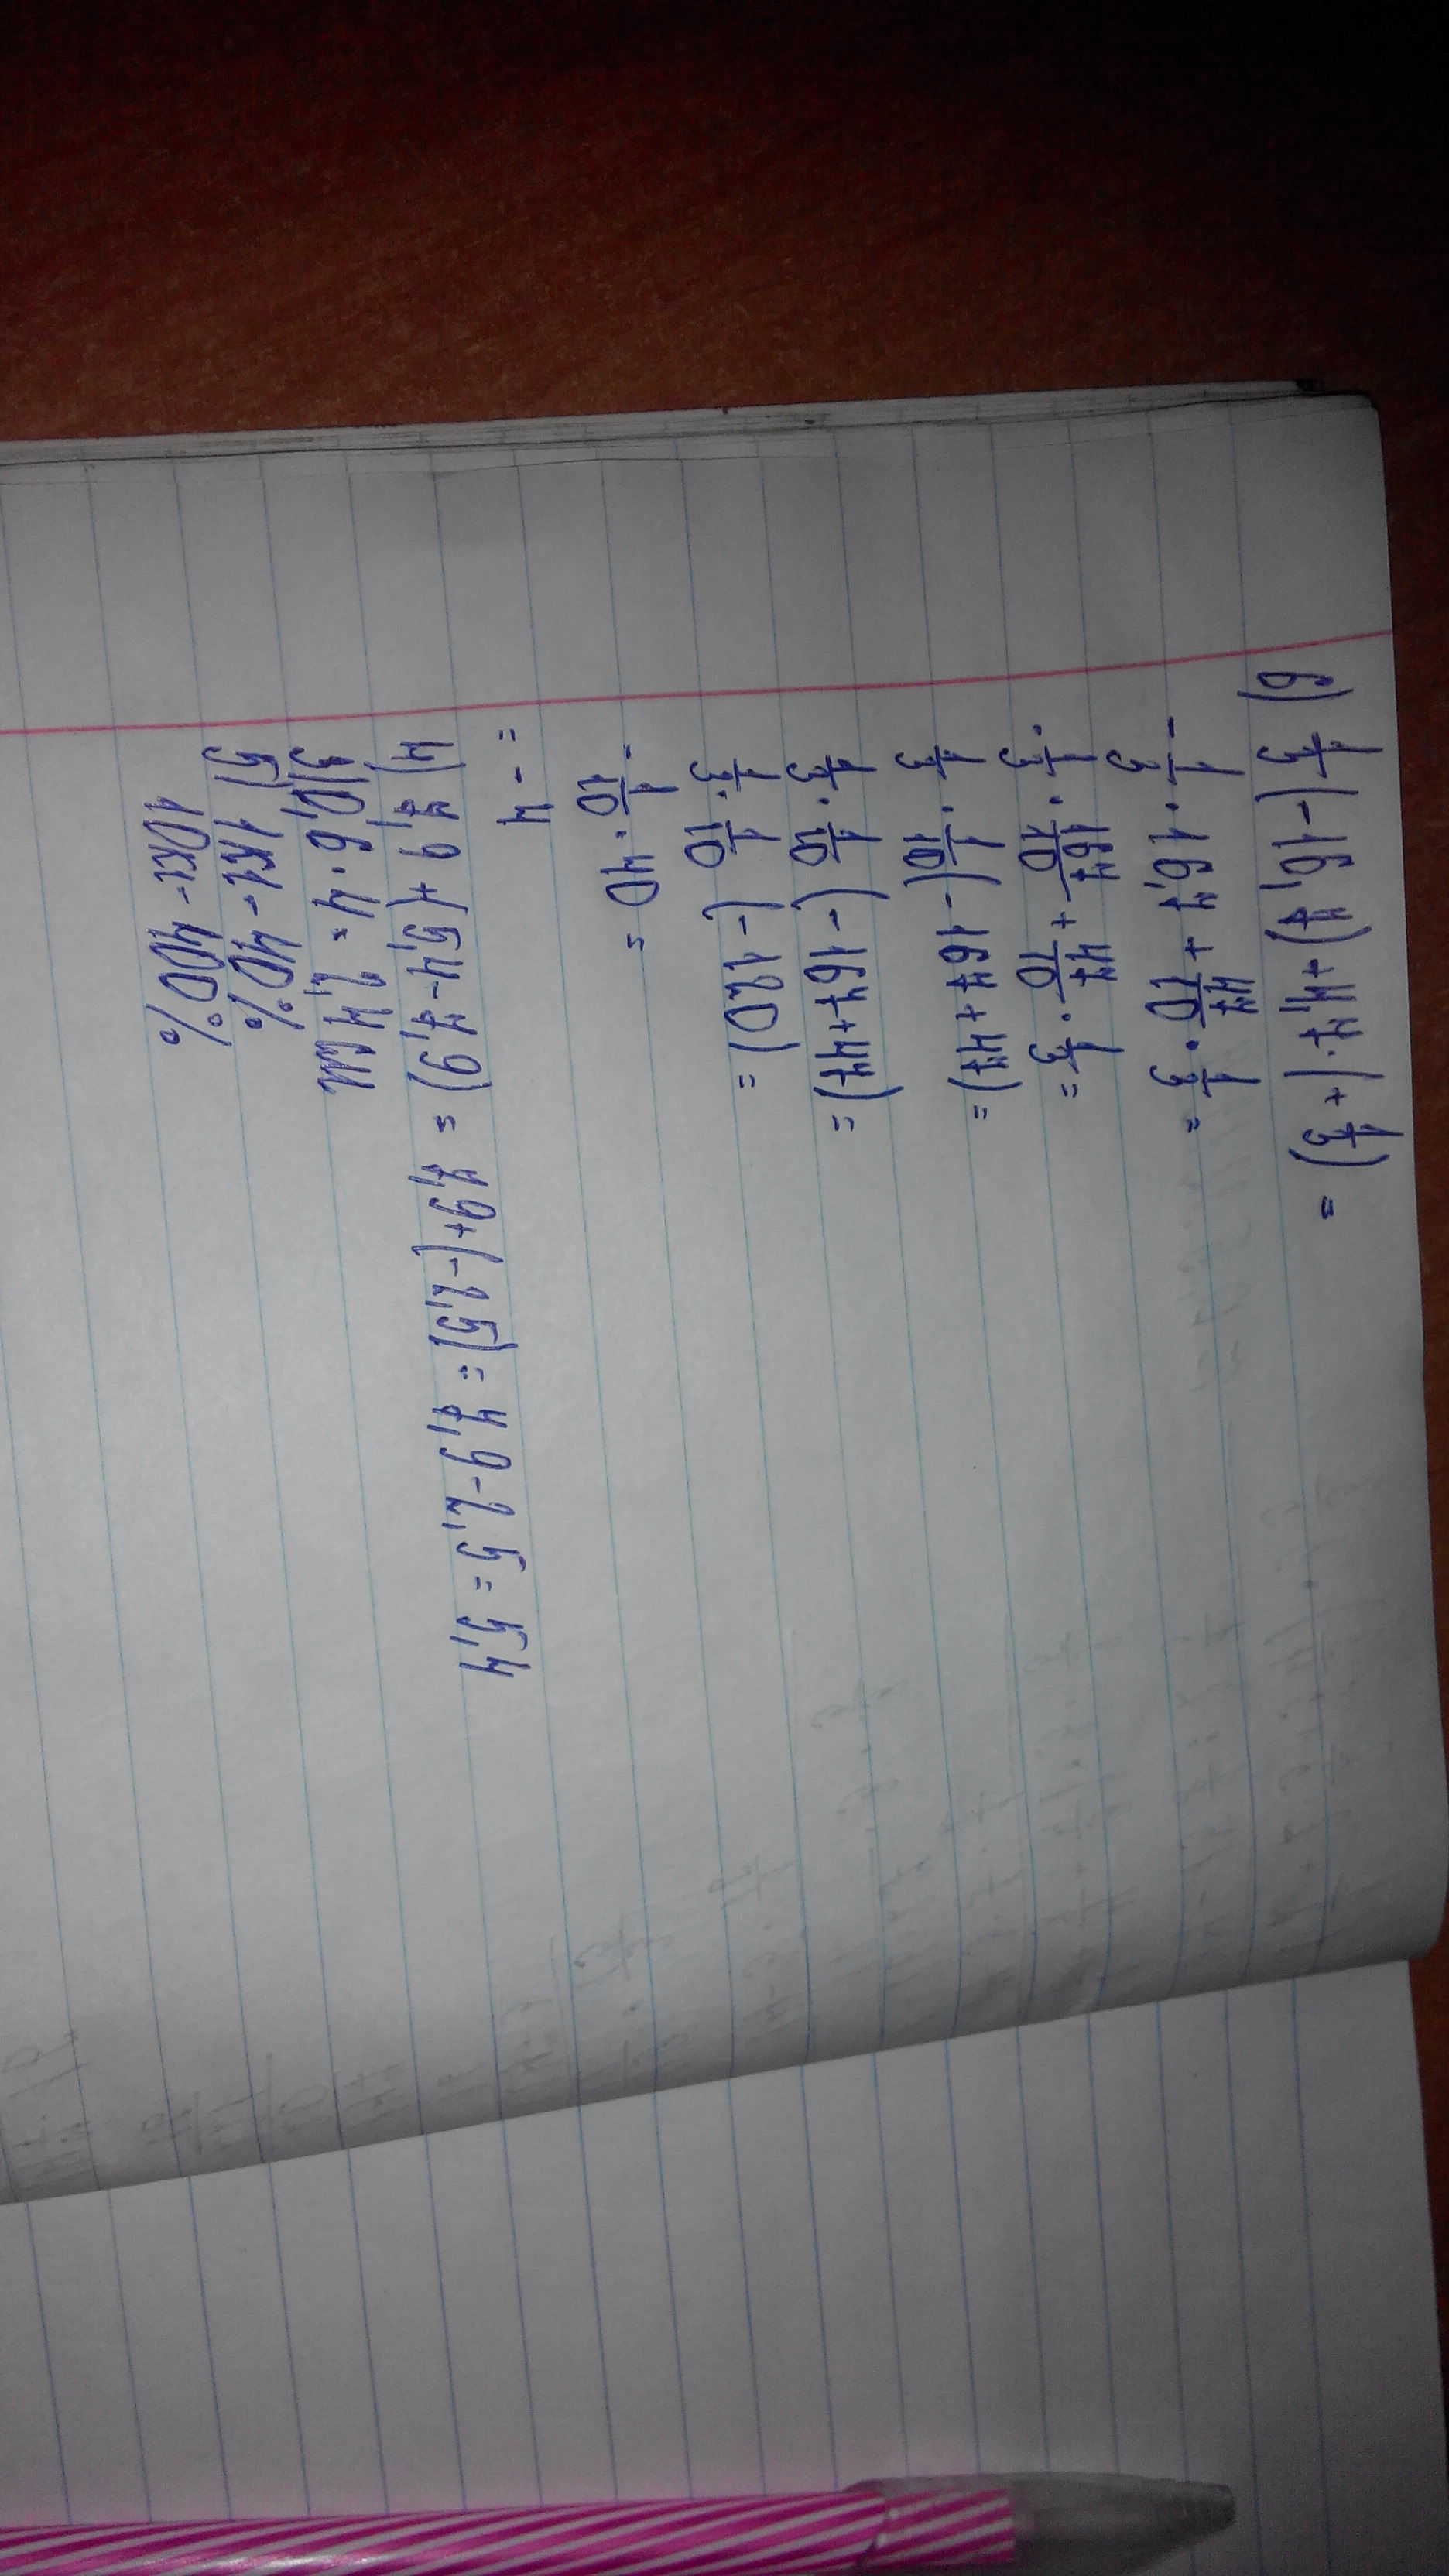 6) 1/3 (-16,7) + 4,7 · (+ 1/3) =
- 1/3 · 16,7 + 47/10 · 1/3 =
· 1/3 · 167/10 + 47/10 · 1/3 =
1/3 · 1/10 (-167 + 47) =
1/3 · 1/10 (-167 + 47) =
1/3 · 1/10 (-120) =
- 1/10 · 40 =
= -4
4) 7,9 + (5,4 - 7,9) = 7,9 + (-2,5) = 7,9 - 2,5 = 5,4
3) 0,6 · 4 = 2,4 см
5) 1кг - 40%
10кг - 400%